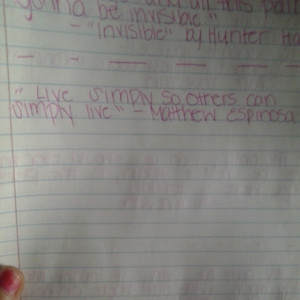 gonna be invisible"
- "Invisible" by Hunter
" Live simply so others can
simply live" - Matthew Espinosa